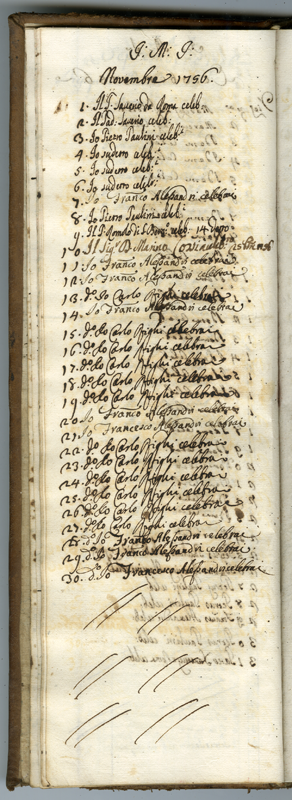 J: M: J:
Novembre 1756.
1. Il P. celeb:
2. Il Pad: celeb:
3. Io Pietro Paolini celeb:
4. Io sudetto celeb:
5. Io sudetto celeb:
6. Io sudetto celeb:
7. Io Franco Alessandri celebrai
8. Io Pietro Paolini cel:
9. Il P. celeb:
10. Il Sig: D. Marino
11. Io Franco Alessandri celebrai
12. Io Franco Alessandri celebrai
13. do Io Carlo Righi celebrai
14. Io Franco Alessandri celebrai
15. do Io Carlo Righi celebrai
16. do Io Carlo Righi celebrai
17. do Io Carlo Righi celebrai
18. do Io Carlo Righi celebrai
19. do Io Carlo Righi celebrai
20. Io Franco Alessandri celebrai
21. Io Francesco Alessandri celebrai
22. do Io Carlo Righi celebrai
23. do Io Carlo Righi celebrai
24. do Io Carlo Righi celebrai
25. do Io Carlo Righi celebrai
26. do Io Carlo Righi celebrai
27. do Io Carlo Righi celebrai
28. do Io Franco Alessandri celebrai
29. do Io Franco Alessandri celebrai
30. do Io Francesco Alessandri celebrai